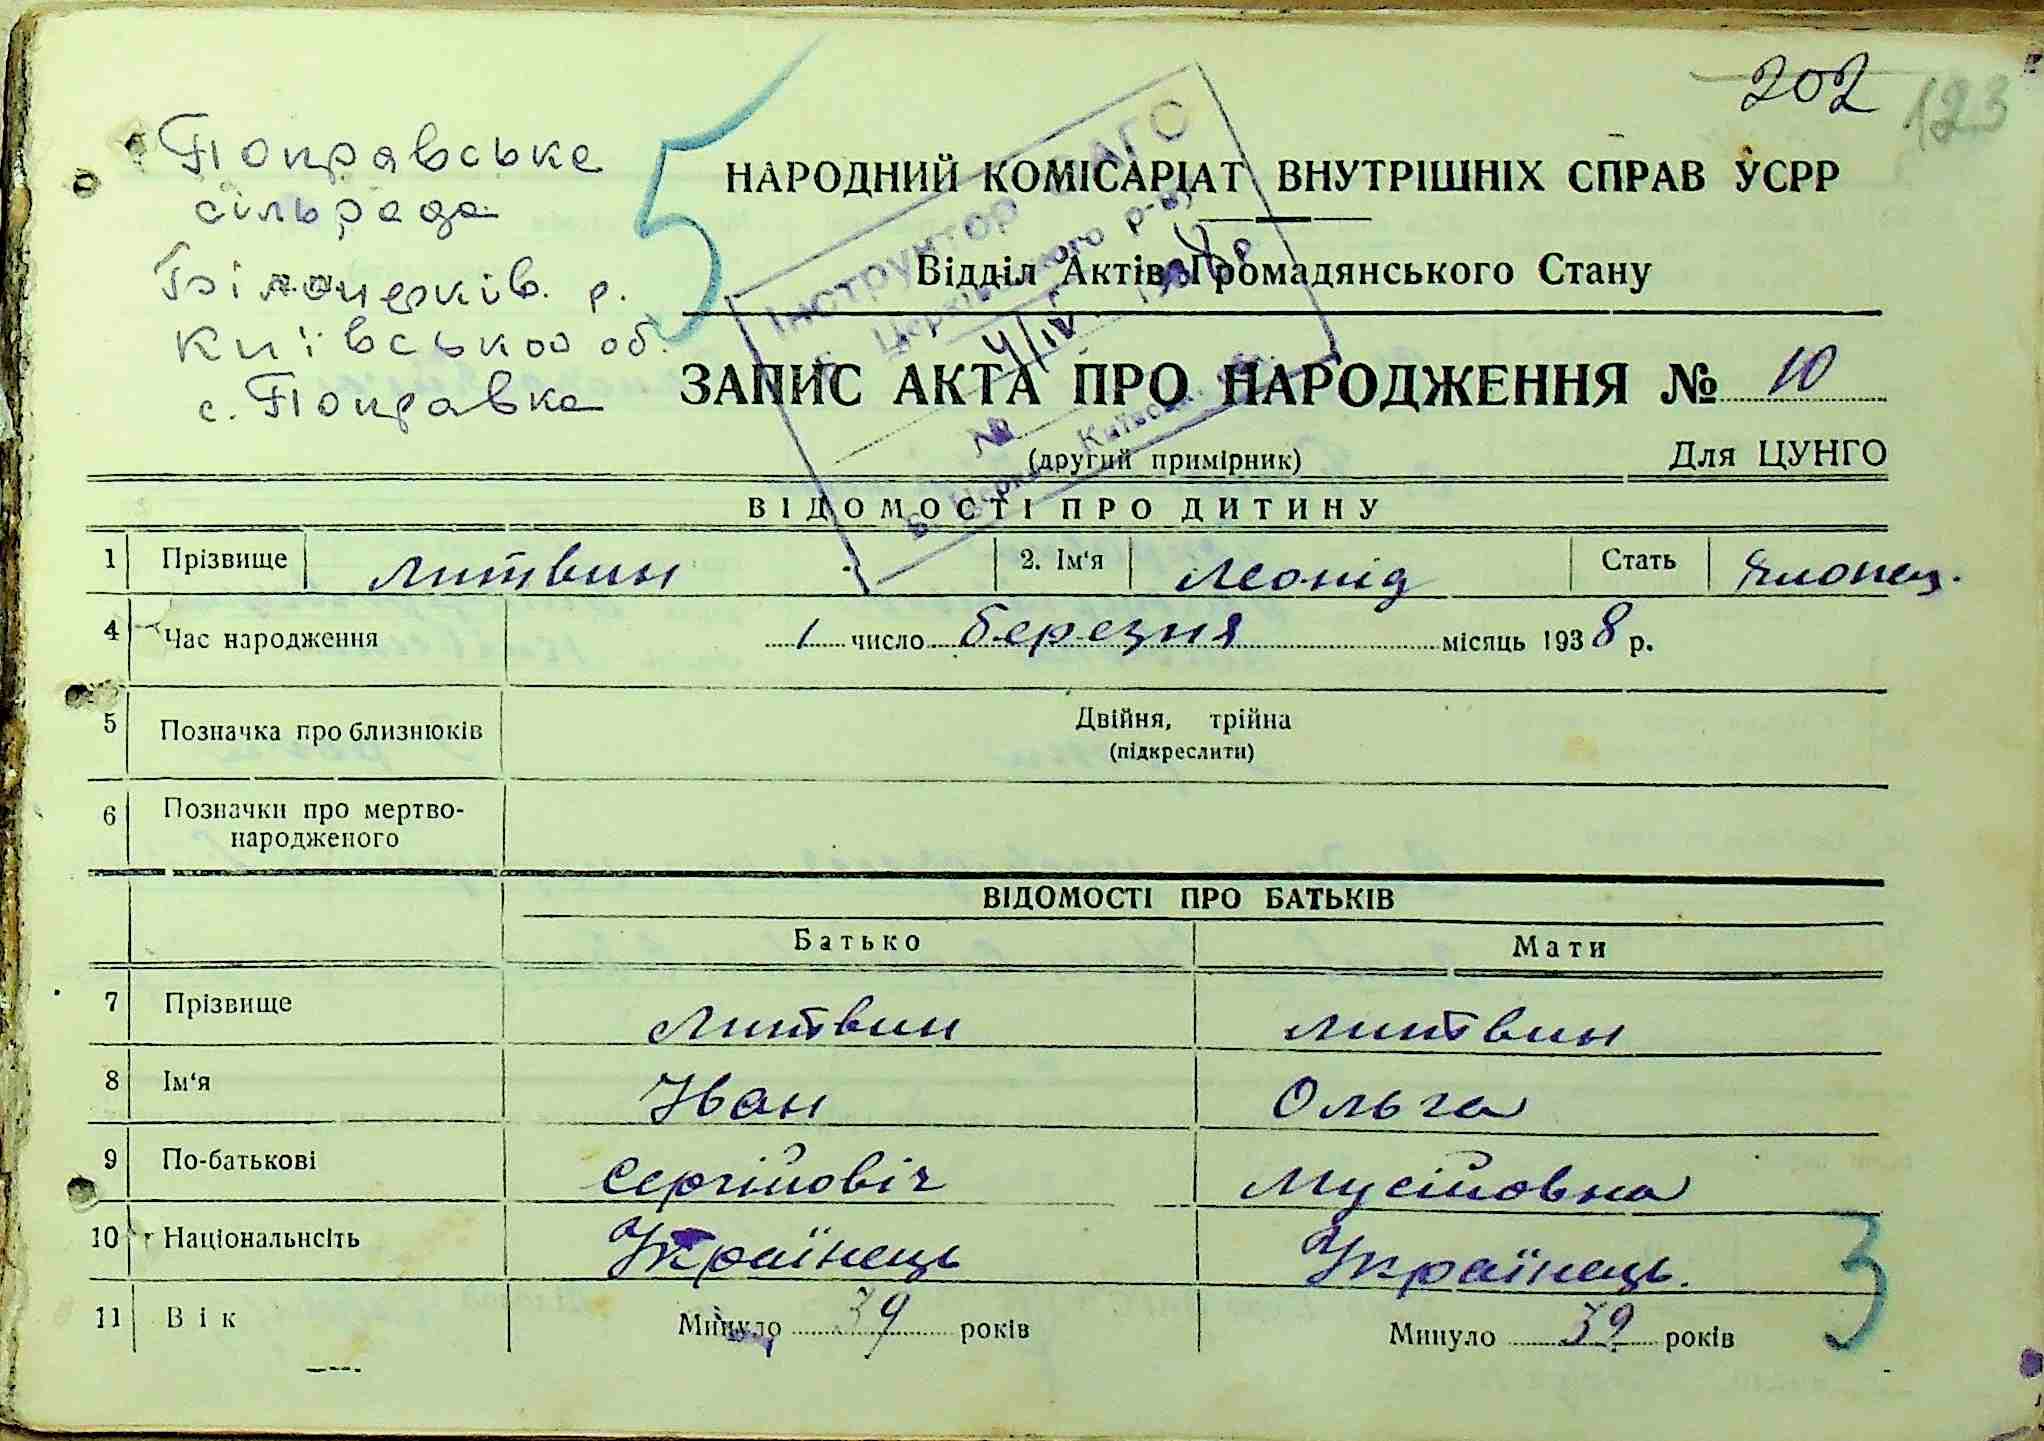 202
123
Поправська
сільрада
Білоцерків. р.
Київськоо об.
с. Поправка
5
НАРОДНИЙ КОМІСАРІАТ ВНУТРІШНІХ СПРАВ УСРР
Відділ Актів Громадянського Стану
Інструктор ЗАГС
Б. Церківського р-ну
4/IV 1938 р
№
Б. Церква, Київськ.
ЗАПИС АКТА ПРО НАРОДЖЕННЯ № 10
(другий примірник) Для ЦУНГО
ВІДОМОСТІ ПРО ДИТИНУ
1 Прізвище Литвин 2. Ім‘я Леонід Стать Хлопец.
4 Час народження 1 число березня місяць 1938 р.
5 Позначка про близнюків Двійня, трійна
(підкреслити)
6 Позначки про мертво-
народженого
ВІДОМОСТІ ПРО БАТЬКІВ
Батько Мати
7 Прізвище Литвин Литвин
8 Ім‘я Іван Ольга
9 По-батькові Сергійовіч Мусійовна
10 Національнсіть Українець Українець.
11 Вік Минуло 39 років Минуло 39 років
3